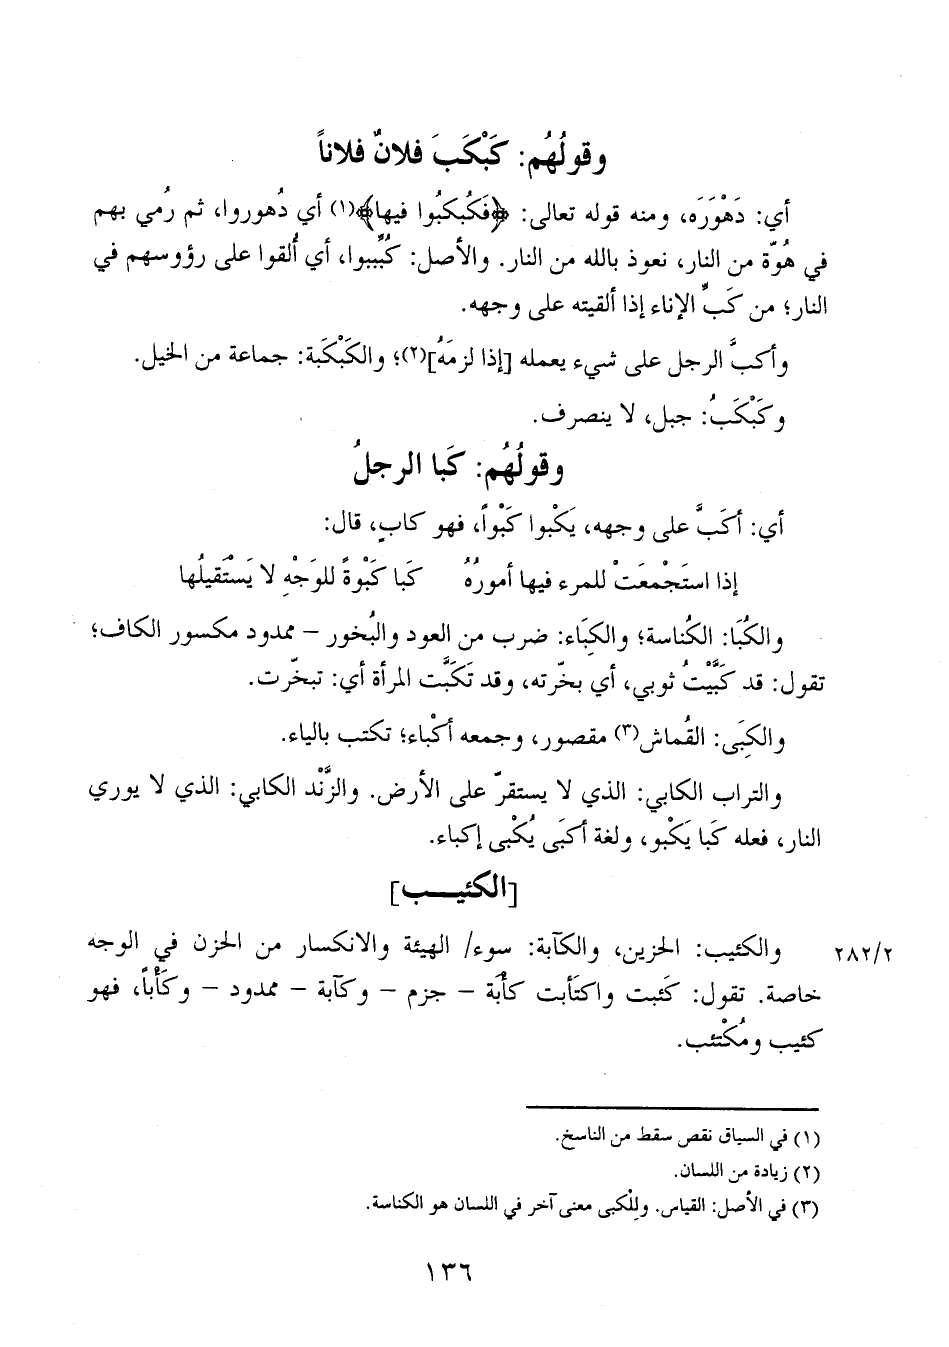 وقولُهُم: كَبْكَبَ فلانٌ فلاناً
أي: دَهْوَرَه، ومنه قوله تعالى: ﴿فَكُبكبُوا فيها﴾(١) أي دُهوروا، ثم رُمي بهم
في هُوّة من النار، نعوذ بالله من النار. والأصل: كُبِّبوا، أي أُلقوا على رؤوسهم في
النار؛ من كَبِّ الإناء إذا ألقيته على وجهه.
وأكبَّ الرجل على شيء يعمله [إذا لزمَهُ](٢)؛ والكَبْكَبة: جماعة من الخيل.
وكَبْكَبُ: جبل، لا ينصرف.
وقولُهُم: كَبا الرجلُ
أي: أكَبَّ على وجهه، يَكْبوا كَبْواً، فهو كابٍ، قال:
إذا استَجْمعَتْ للمرء فيها أمورُهُ كَبا كَبْوةً للوَجْهِ لا يَسْتَقيلُها
والكُبَا: الكُناسة؛ والكِبَاء: ضرب من العود والبُخور – ممدود مكسور الكاف؛
تقول: قد كَبَّيْتُ ثوبي، أي بخّرته، وقد تكَبَّت المرأة أي: تبخّرت.
والكِبَى: القُماش(٣) مقصور، وجمعه أكْباء؛ تكتب بالياء.
والتراب الكابي: الذي لا يستقرّ على الأرض. والزَّنْد الكابي: الذي لا يوري
النار، فعله كَبا يَكْبو، ولغة أكبَى يُكْبي إكباء.
[الكئيب]
٢٨٢/٢ والكئيب: الحزين، والكآبة: سوء/ الهيئة والانكسار من الحزن في الوجه
خاصة. تقول: كَئبت واكتَأبت كأْبَة – جزم – وكآبة – ممدود – وكَأْباً، فهو
كئيب ومُكْتئب.
(١) في السياق نقص سقط من الناسخ.
(٢) زيادة من اللسان.
(٣) في الأصل: القياس. وللْكبى معنى آخر في اللسان هو الكناسة.
١٣٦